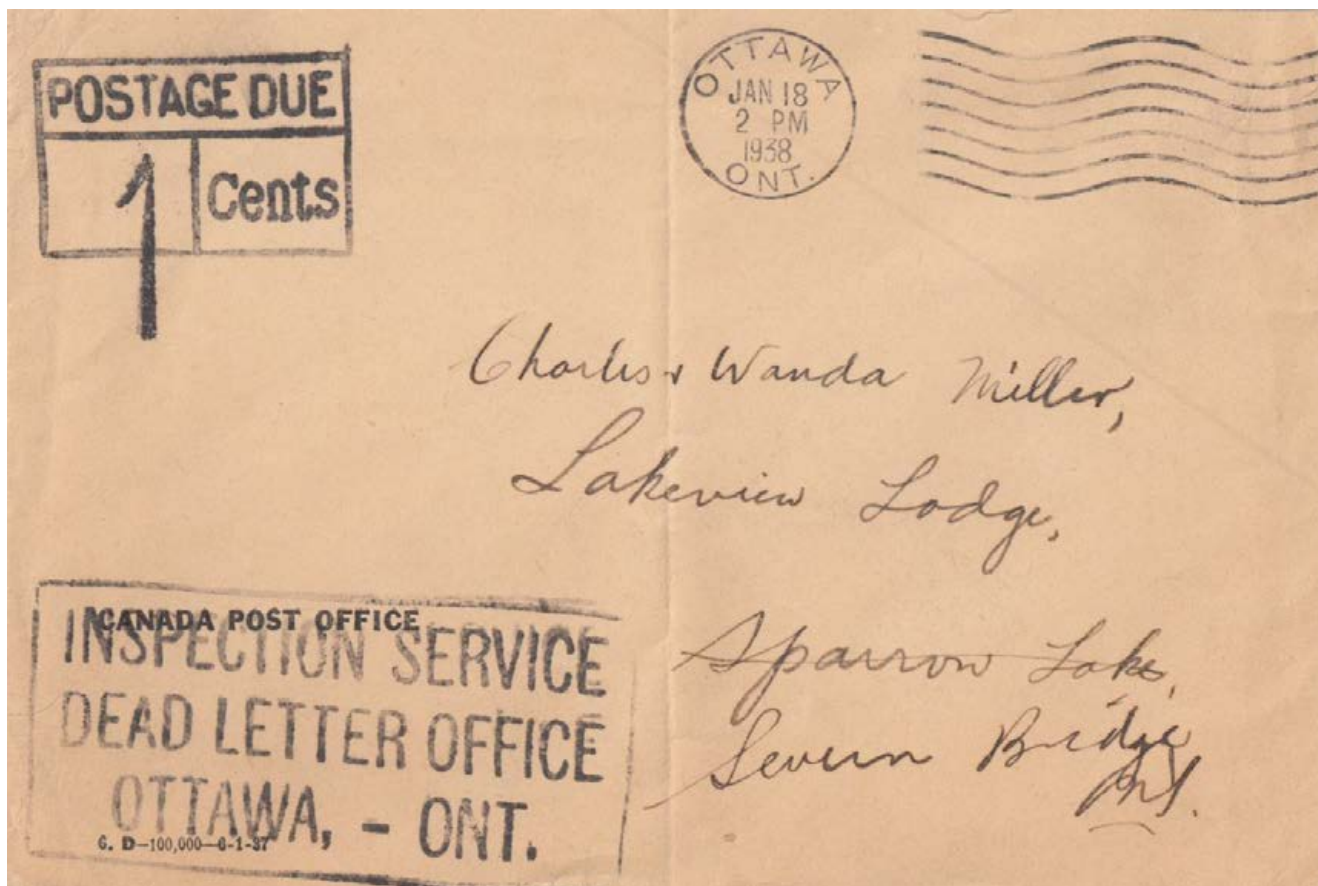 POSTAGE DUE
1 Cents
OTTAWA
JAN 18
2 PM
1938
ONT.
Charles & Wanda Miller,
Lakeview Lodge,
Sparrow Lake,
Severn Bridge
Ont.
CANADA POST OFFICE
INSPECTION SERVICE
DEAD LETTER OFFICE
OTTAWA, - ONT.
6. D—100,000—6-1-37